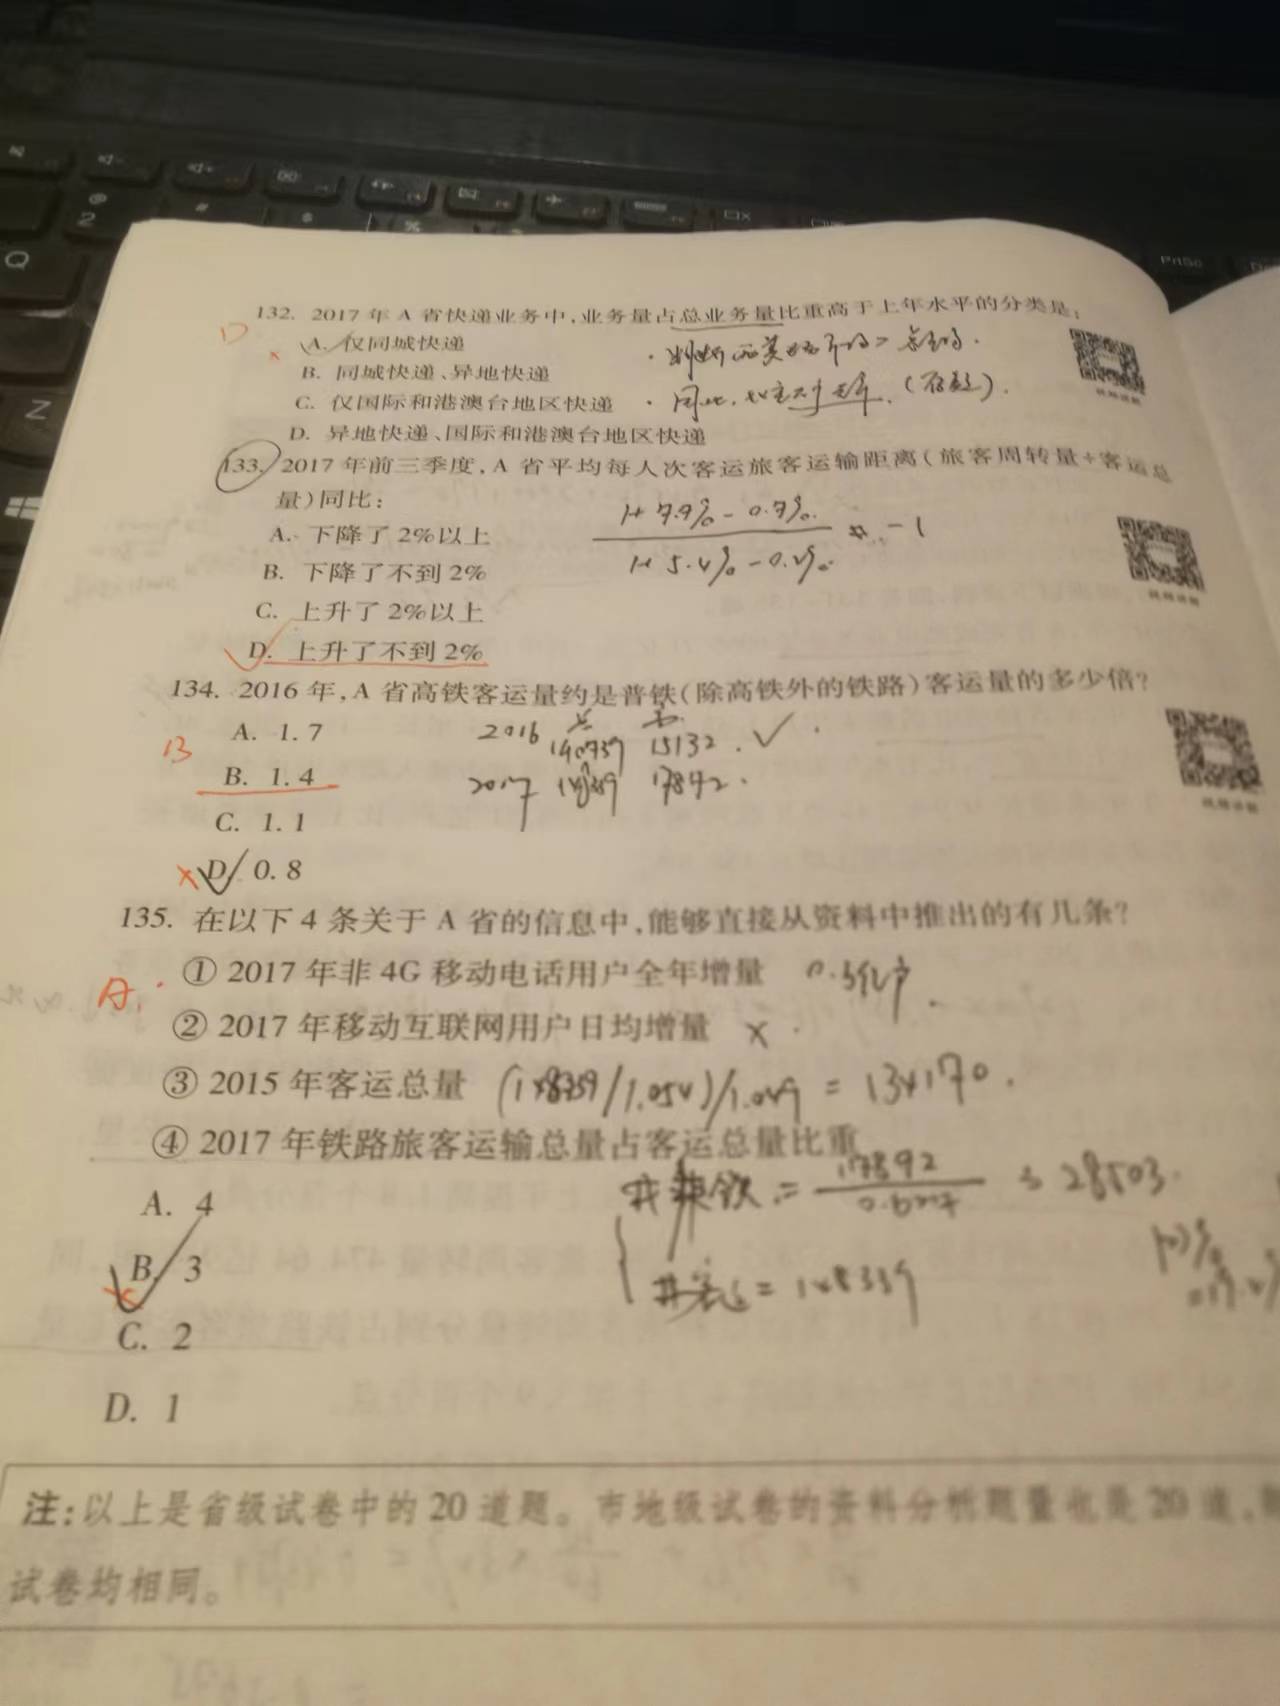 132. 2017年A省快递业务中,业务量占总业务量比重高于上年水平的分类是:
D
A. 仅同城快递
B. 同城快递、异地快递
C. 仅国际和港澳台地区快递
D. 异地快递、国际和港澳台地区快递
133. 2017年前三季度,A省平均每人次客运旅客运输距离(旅客周转量÷客运总
量)同比:
A. 下降了2%以上
B. 下降了不到2%
C. 上升了2%以上
D. 上升了不到2%
134. 2016年,A省高铁客运量约是普铁(除高铁外的铁路)客运量的多少倍?
A. 1.7
2016
15132
13
B. 1.4
2017
17842
C. 1.1
D. 0.8
135. 在以下4条关于A省的信息中,能够直接从资料中推出的有几条?
A.
① 2017年非4G移动电话用户全年增量
② 2017年移动互联网用户日均增量 ×
③ 2015年客运总量
= 134170.
④ 2017年铁路旅客运输总量占客运总量比重
A. 4
28503.
B. 3
C. 2
D. 1
注:以上是省级试卷中的20道题。市地级试卷的资料分析题量也是20道,
试卷均相同。
PrtSc
Q
Z
2